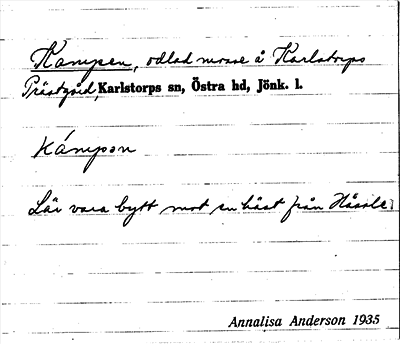 Kampen, odlad mosse å Karlstorps
Prästgård, Karlstorps sn, Östra hd, Jönk. l.
kámpən
Lär vara bytt mot en häst från
Annalisa Anderson 1935